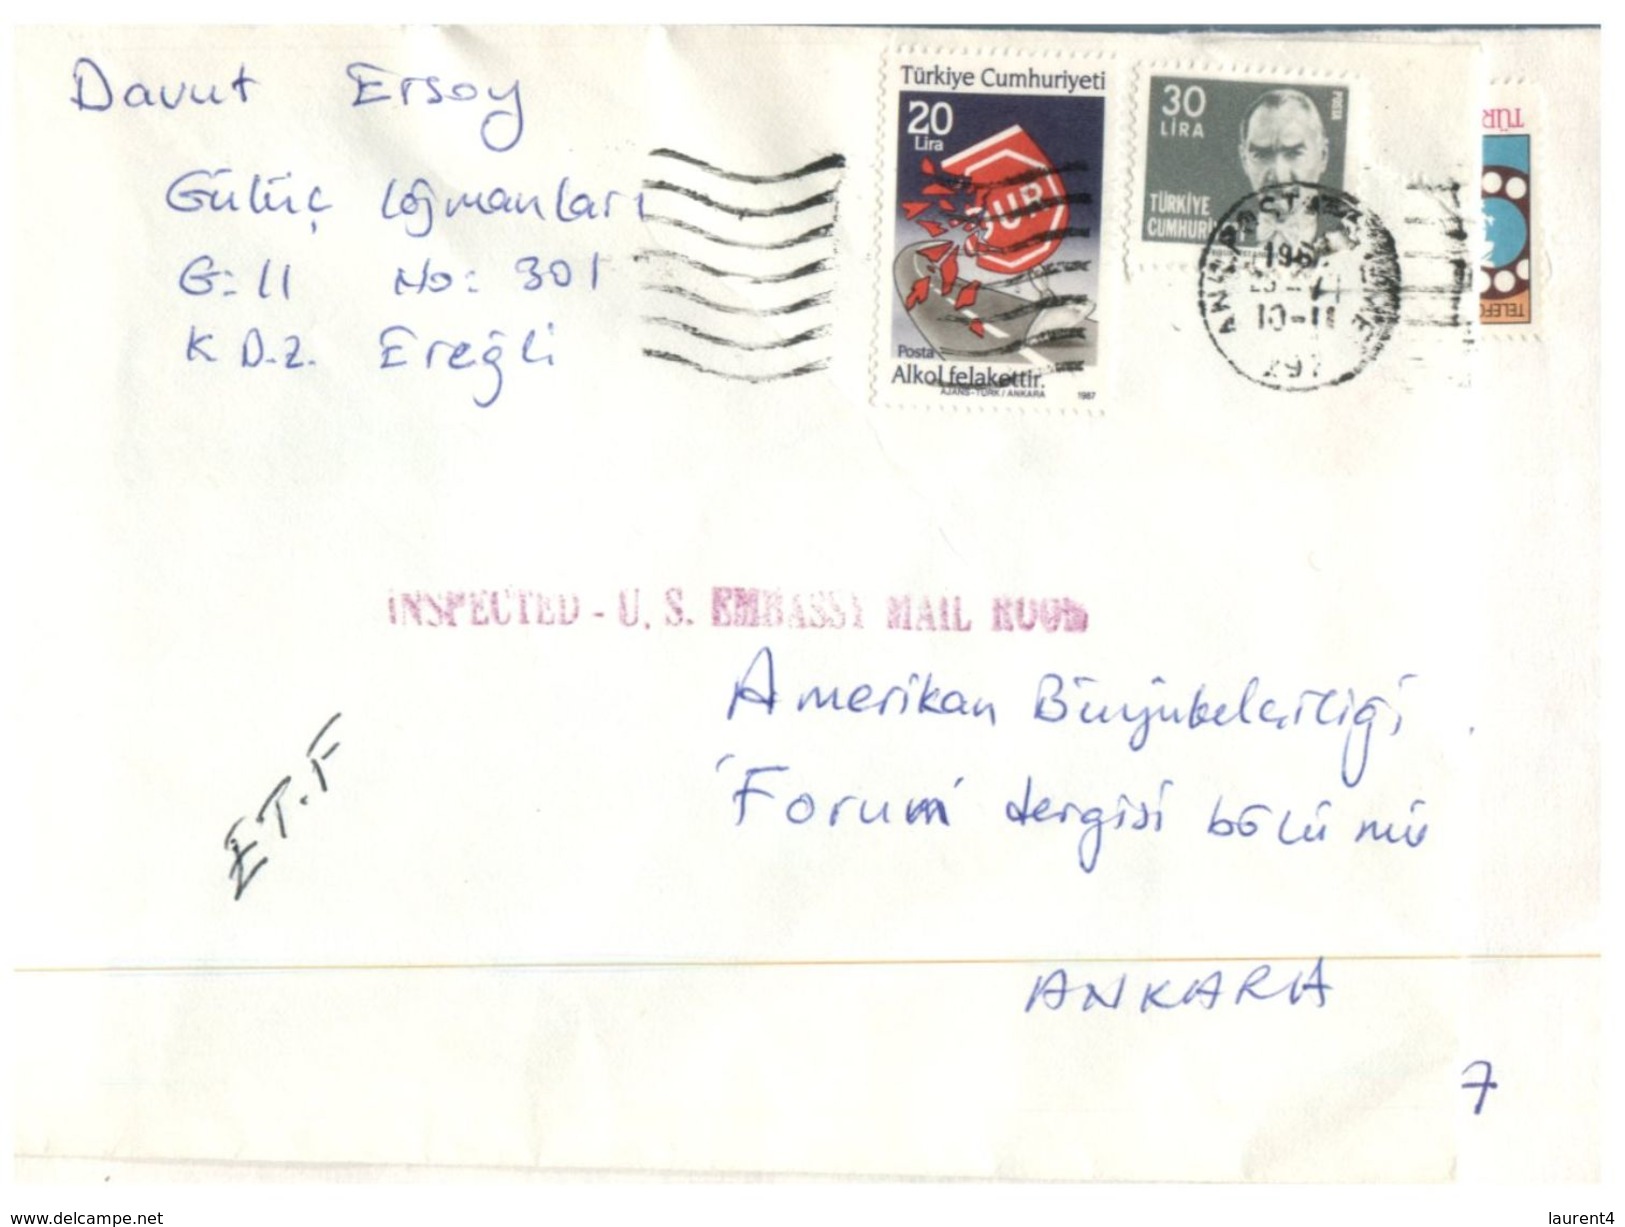 Davut Ersoy
Gülüç loğmanları
G:11 No: 301
K D.z. Ereğli
Türkiye Cumhuriyeti
20
Lira
DUR
Posta
Alkol felakettir.
AJANS-TÜRK / ANKARA 1987
30
LİRA
POSTA
TÜRKİYE
CUMHURİ
10-11
297
TÜR
TELEFO
INSPECTED - U. S. EMBASSY MAIL ROOM
Amerikan Büyükelçiliği
"Forum" dergisi bölümü
E.T.F
ANKARA
7
www.delcampe.net
laurent4